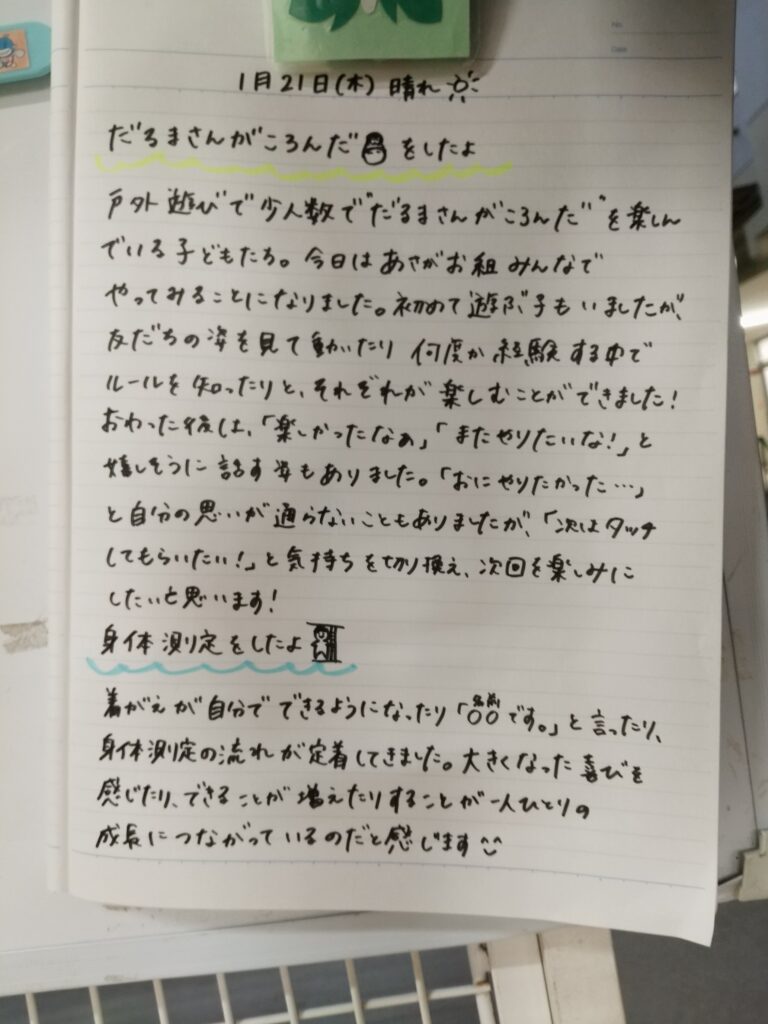 1月21日(木) 晴れ
だるまさんがころんだ をしたよ
戸外遊びで少人数で"だるまさんがころんだ"を楽しん
でいる子どもたち。今日はあさがお組みんなで
やってみることになりました。初めて遊ぶ子もいましたが、
友だちの姿を見て動いたり 何度か経験する中で
ルールを知ったりと、それぞれが楽しむことができました!
おわった後は、「楽しかったなぁ」「またやりたいな!」と
嬉しそうに話す姿もありました。「おにやりたかった…」
と自分の思いが通らないこともありましたが、「次はタッチ
してもらいたい!」と気持ちを切り換え、次回を楽しみに
したいと思います!
身体測定をしたよ
着がえが自分でできるようになったり「〇〇です。」と言ったり、
名前
身体測定の流れが定着してきました。大きくなった喜びを
感じたり、できることが増えたりすることが一人ひとりの
成長につながっているのだと感じます
No.
Date